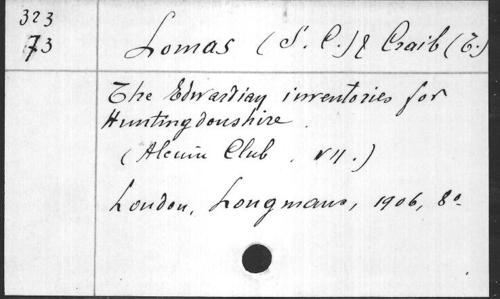 323
73
Lomas (S. C.) & Craib (T.)
The Edwardian inventories for
Huntingdonshire.
(Alcuin Club. VII.)
London, Longmans, 1906, 8o.